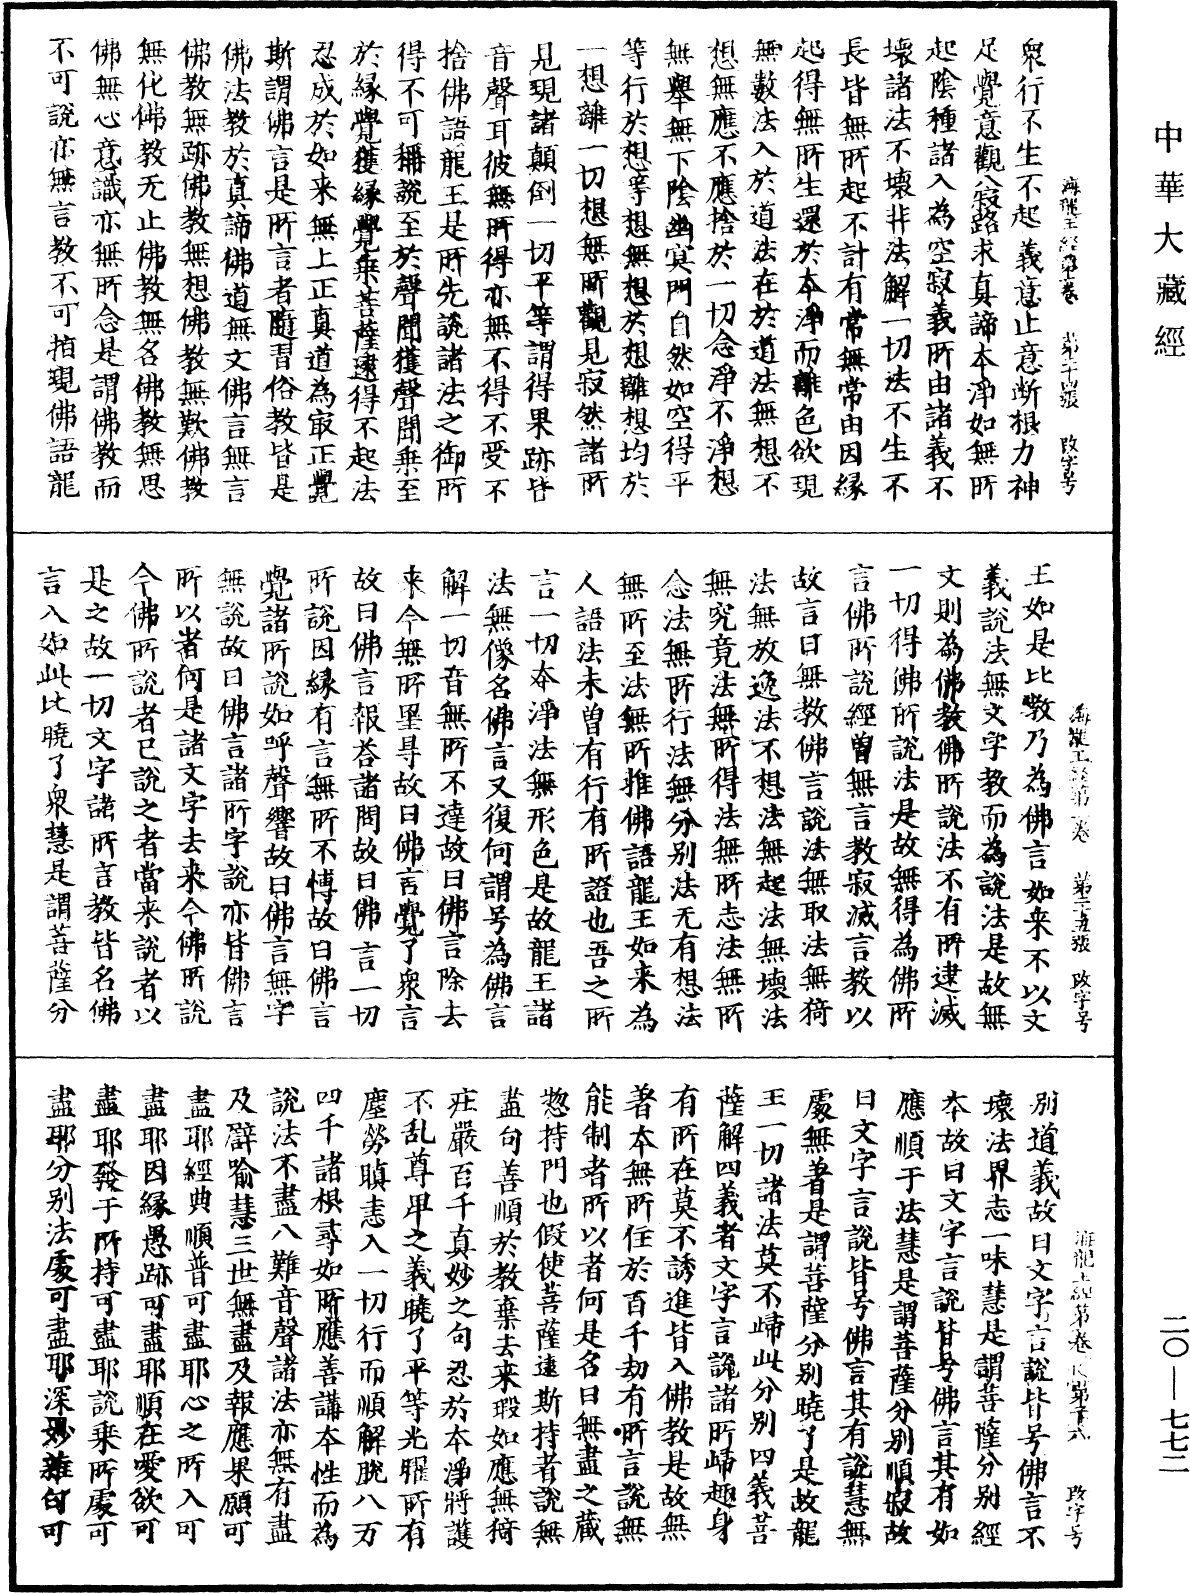 中華大藏經
海龍王經第二卷 第二十四張 改字号
衆行不生不起義意止意断根力神
足覺意觀八寂路求真諦本淨如無所
起陰種諸入為空寂義所由諸義不
壞諸法不壞非法解一切法不生不
長皆無所起不計有常無常由因縁
起得無所生還於本淨而離色欲現
無數法入於道法在於道法無想不
想無應不應捨於一切念淨不淨想
無舉無下陰幽冥門自然如空得平
等行於想等想無想於想離想均於
一想離一切想無所觀見寂然諸所
見現諸顛倒一切平等謂得果跡皆
音聲耳彼無所得亦無不得不受不
捨佛語龍王是所先說諸法之御所
得不可稱說至於聲聞獲聲聞乗至
於縁覺獲縁覺乗菩薩逮得不起法
忍成於如来無上正真道為㝡正覺
斯謂佛言是所言者隨習俗教皆是
佛法教於真諦佛道無文佛言無言
佛教無跡佛教無想佛教無歎佛教
無化佛教无止佛教無名佛教無思
佛無心意識亦無所念是謂佛教而
不可說亦無言教不可拍現佛語龍
海龍王經第二卷 第二十五張 改字号
王如是比教乃為佛言如来不以文
義說法無文字教而為說法是故無
文則為佛教佛所說法不有所逮滅
一切得佛所說法是故無得為佛所
言佛所說經曽無言教寂滅言教以
故言曰無教佛言說法無取法無猗
法無放逸法不想法無起法無壞法
無究竟法無所得法無所志法無所
念法無所行法無分别法无有想法
無所至法無所推佛語龍王如来為
人語法未曽有行有所證也吾之所
言一切本淨法無形色是故龍王諸
法無像名佛言又復何謂号為佛言
解一切音無所不達故曰佛言除去
来今無所罣㝵故曰佛言覺了衆言
故曰佛言報荅諸問故曰佛言一切
所說因縁有言無所不博故曰佛言
覺諸所說如呼聲響故曰佛言無字
無說故曰佛言諸所字說亦皆佛言
所以者何是諸文字去来今佛所說
今佛所說者已說之者當来說者以
是之故一切文字諸所言教皆名佛
言入如此比曉了衆慧是謂菩薩分
海龍王經第二卷 第二十六張 改字号
别道義故曰文字言說皆号佛言不
壞法界志一味慧是謂菩薩分别經
本故曰文字言說皆号佛言其有如
應順于法慧是謂菩薩分别順寂故
曰文字言說皆号佛言其有說慧無
處無著是謂菩薩分别曉了是故龍
王一切諸法莫不歸此分别四義菩
薩解四義者文字言說諸所歸趣身
有所在莫不誘進皆入佛教是故無
著本無所住於百千劫有所言說無
能制者所以者何是名曰無盡之藏
揔持門也假使菩薩逮斯持者說無
盡句善順於教棄去来瑕如應無猗
莊嚴百千真妙之句忍於本淨將護
不乱尊卑之義曉了平等光曜所有
塵勞瞋恚入一切行而順解脫八万
四千諸根尋如所應善講本性而為
說法不盡八難音聲諸法亦無有盡
及辟喻慧三世無盡及報應果願可
盡耶經典順普可盡耶心之所入可
盡耶因縁愚跡可盡耶順在愛欲可
盡耶發于所持可盡耶說乗所處可
盡耶分别法處可盡耶深妙雜句可
二〇—七七二